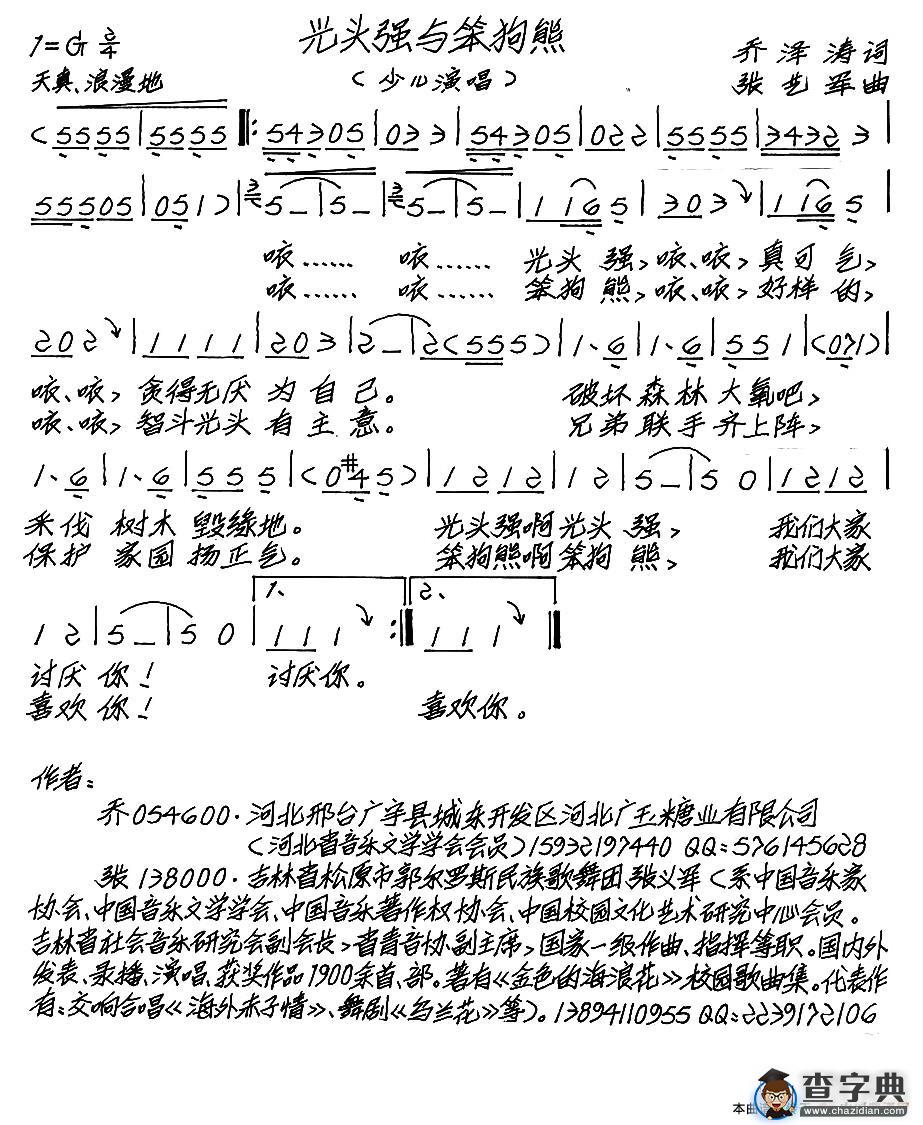 光头强与笨狗熊
1=G 2/4
乔泽涛词
天真、浪漫地
(少儿演唱)
张艺军曲
(5555|5555‖:54305|033|54305|022|5555|34323|
55505|051)|5–|5–|5–|5–|1165|303|1165|
咴…… 咴…… 光头 强,咴、咴,真可 气,
咴…… 咴…… 笨狗 熊,咴、咴,好样 的,
202|1111|203|2–|2(555)|1、6|1、6|551|(071)|
咴、咴,贪得无厌 为 自 己。 破坏 森林 大氧吧,
咴、咴,智斗光头 有 主 意。 兄弟 联手 齐上阵,
1、6|1、6|555 5|(0#45)|1212|12|5–|50|1212|
采伐 树木 毁绿地。 光头强啊光头 强, 我们大家
保护 家园 扬正气。 笨狗熊啊笨狗 熊, 我们大家
12|5–|50|1、111:‖2、111‖
讨厌 你! 讨厌你。
喜欢 你! 喜欢你。
作者:
乔054600·河北邢台广宗县城东开发区河北广玉糖业有限公司
(河北省音乐文学学会会员)15932197440 QQ:576145628
张138000·吉林省松原市郭尔罗斯民族歌舞团 张义军(系中国音乐家
协会、中国音乐文学学会、中国音乐著作权协会、中国校园文化艺术研究中心会员。
吉林省社会音乐研究会副会长,省青音协副主席,国家一级作曲、指挥等职。国内外
发表、录播、演唱、获奖作品1900余首、部。著有《金色的海浪花》校园歌曲集。代表作
有:交响合唱《海外赤子情》、舞剧《乌兰花》等)。13894110955 QQ:2239172106
本曲
查字典
www.chazidian.com